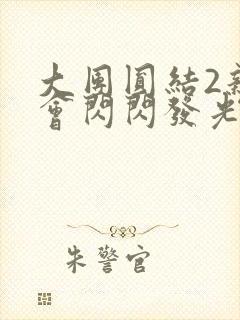 大團圓結2新
會閃閃發光
朱警官